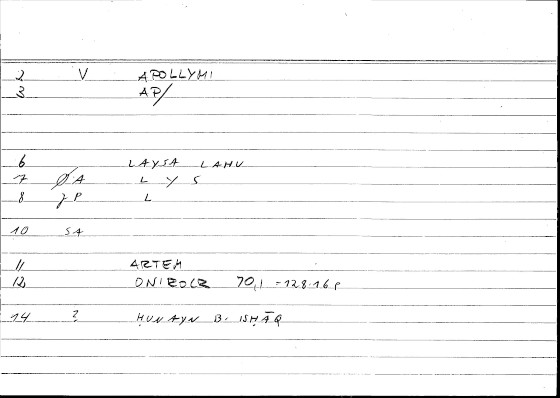 2 V APOLLYMI
3 AP/
6 LAYSA LAHU
7 ØA L Y S
8 γP L
10 SA
11 ARTEM
12 ONIROCR 70,1 = 128.16 p
14 ? ḤUNAYN B. ISḤĀQ